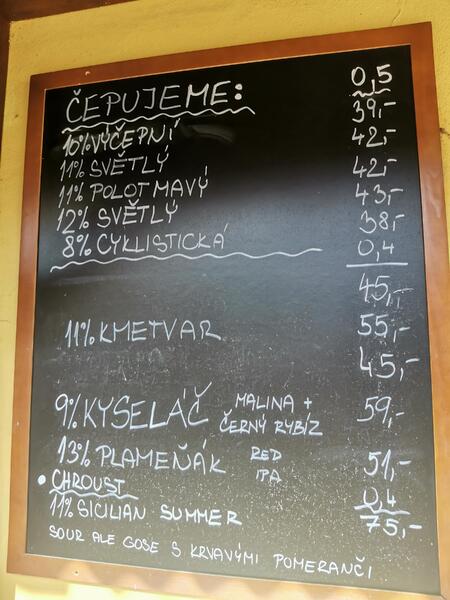 ČEPUJEME: 0,5
10% VÝČEPNÍ 39,-
11% SVĚTLÝ 42,-
11% POLOTMAVÝ 42,-
12% SVĚTLÝ 43,-
8% CYKLISTICKÁ 38,-
0,4
45,-
11% KMETVAR 55,-
45,-
9% KYSELÁČ MALINA + 59,-
ČERNÝ RYBÍZ
13% PLAMEŇÁK RED 51,-
IPA
• CHROUST 0,4
11% SICILIAN SUMMER 75,-
SOUR ALE GOSE S KRVAVÝMI POMERANČI